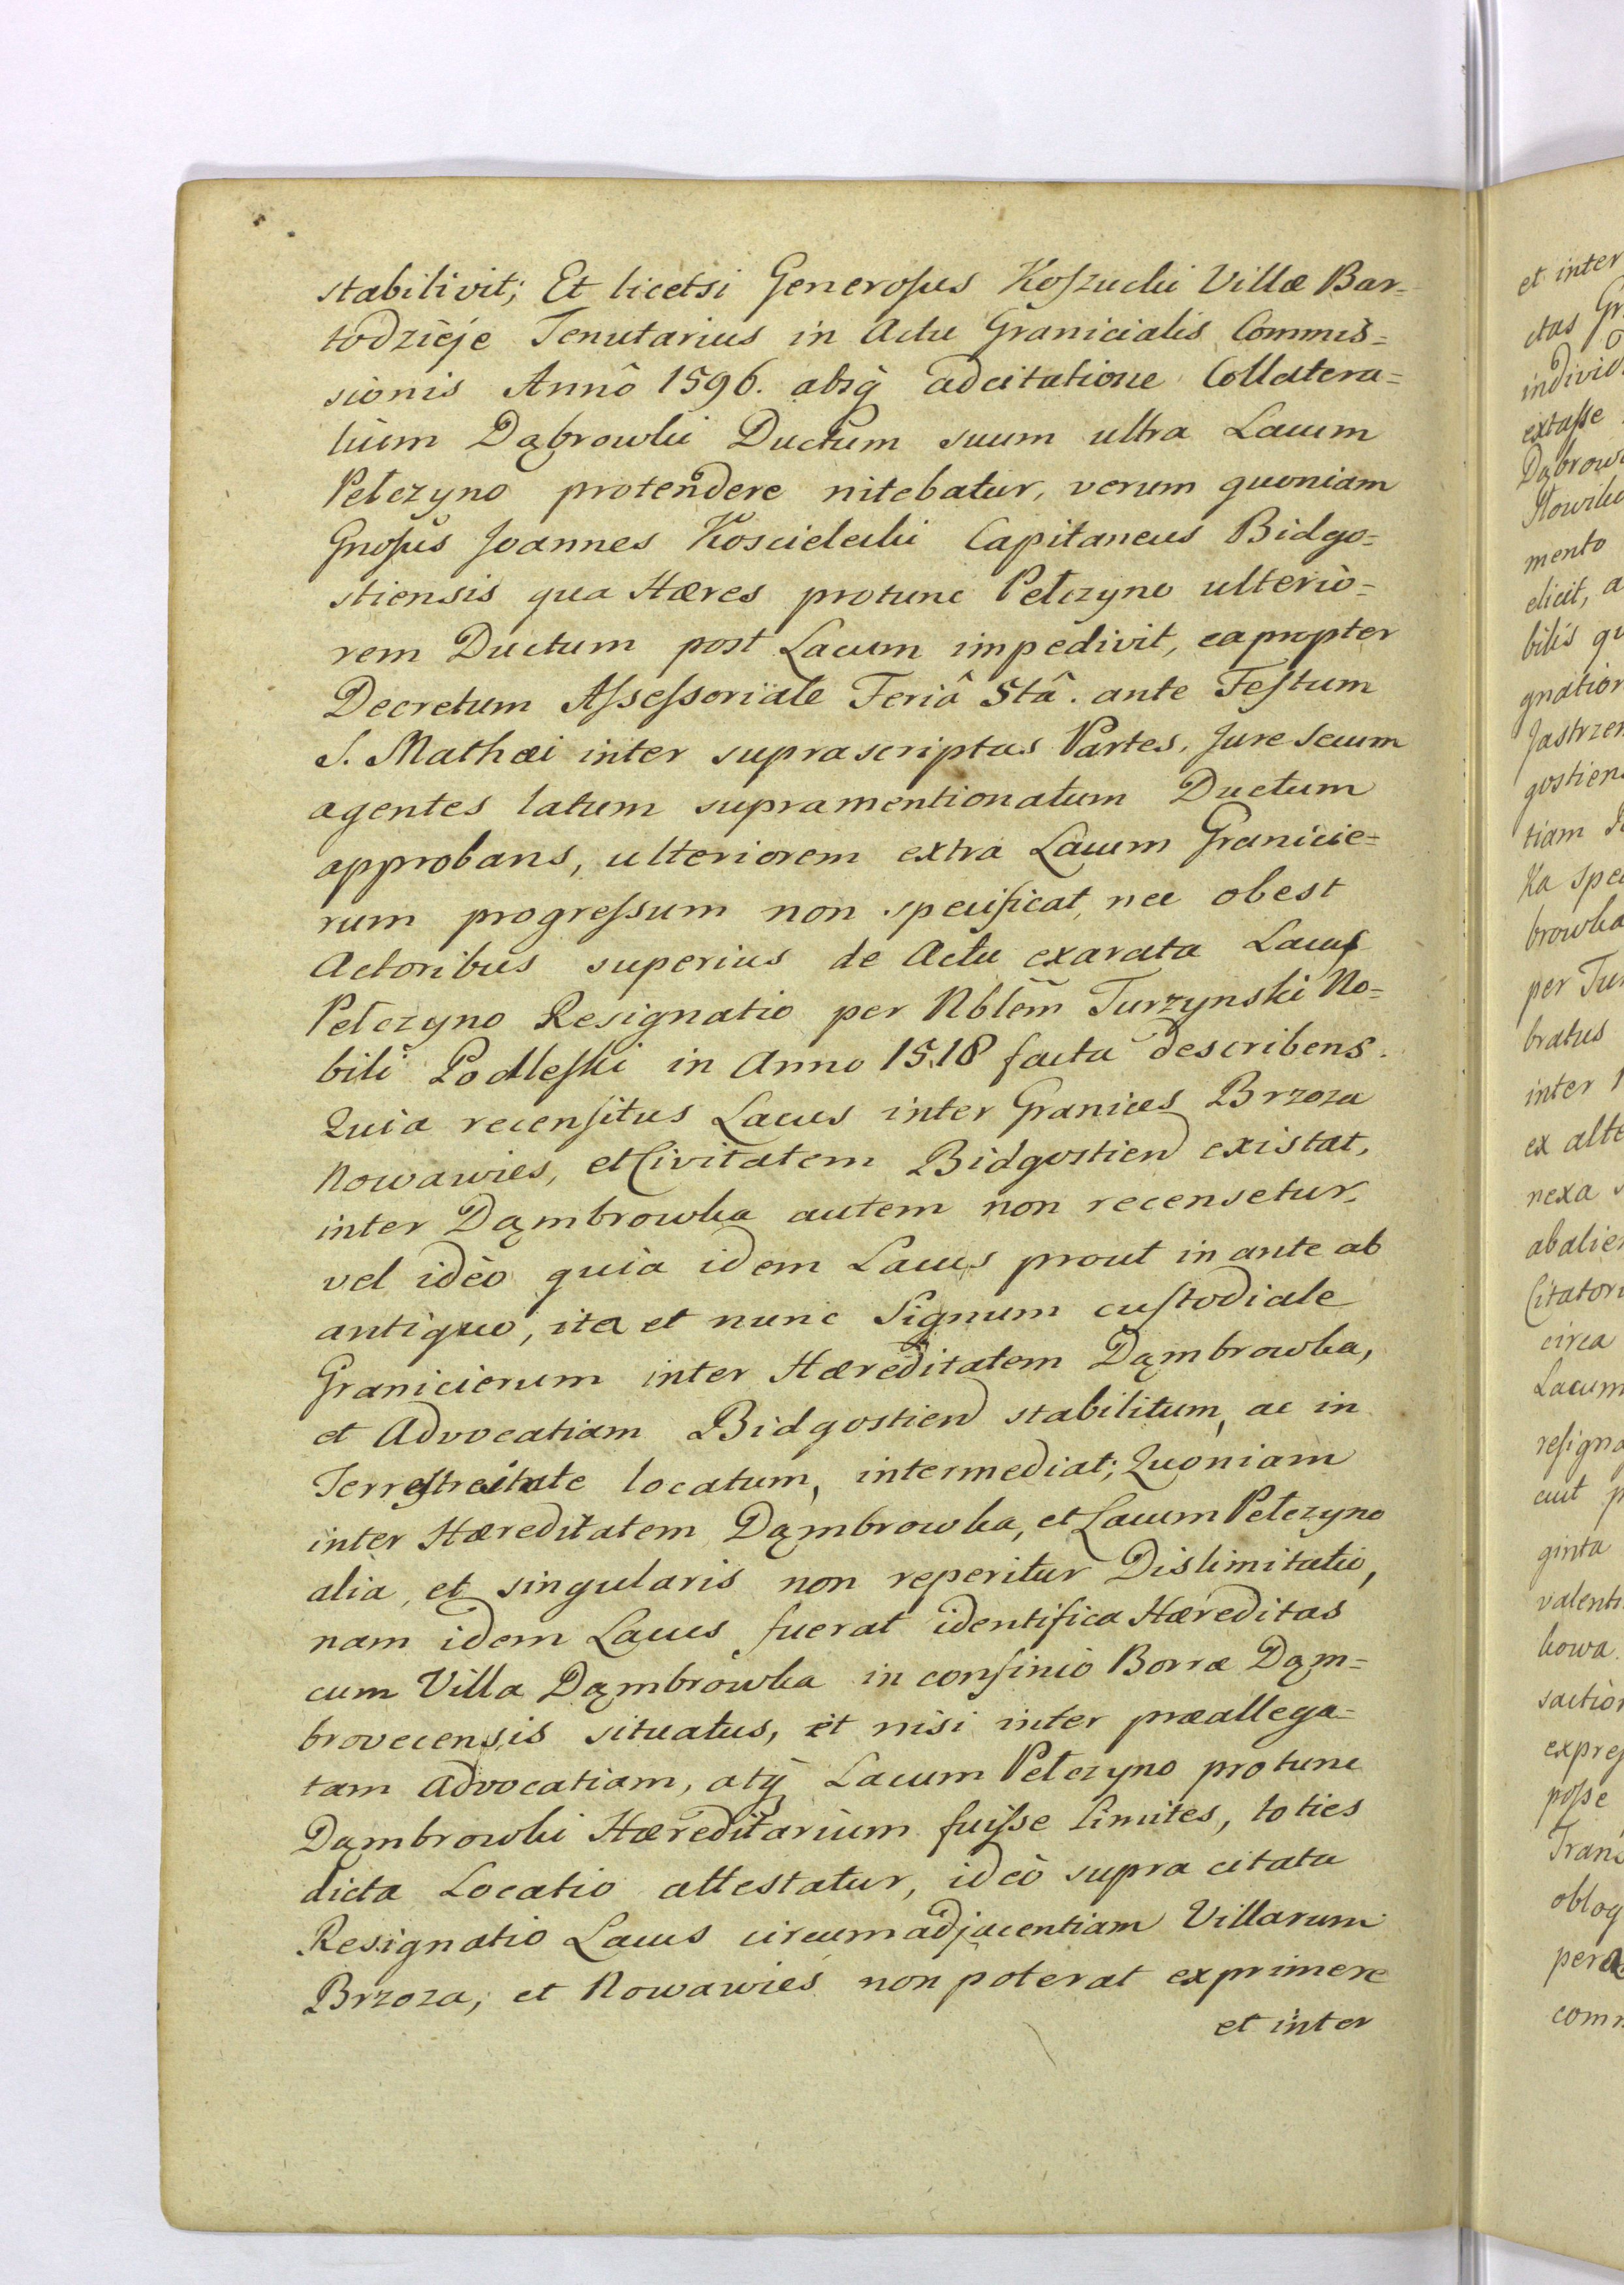 stabilivit; Et licetsi Generosus Koszucki Villæ Bar=
todzieje Tenutarius in Actu Granicialis Commis=
sionis Annô 1596. absq̀ adcitatione Collatera=
lium Dąbrowki Ductum suum ultra Lacum
Pełczyno protendere nitebatur, verum quoniam
Gnosus Joannes Koscielecki Capitaneus Bidgo=
stiensis qua Hæres protunc Pełczyno ulterio=
rem Ductum post Lacum impedivit, eapropter
Decretum Assessoriale Feriâ 5tâ. ante Festum
S. Mathæi inter suprascriptas Partes, Jure secum
agentes latum supramentionatum Ductum
approbans, ulteriorem extra Lacum Granicie=
rum progressum non specificat, nec obest
Actoribus superius de Actu exarata Lacus
Pełczyno Resignatio per Nblem Turzynski No=
bili Podleski in Anno 1518 facta describens.
Quia recensitus Lacus inter Granices Brzoza
Nowawies, et Civitatem Bidgostien existat,
inter Dąmbrowka autem non recensetur,
vel ideò quià idem Lacus prout in ante ab
antiquo, ita et nunc Signum custodiale
Granicierum inter Hæreditatem Dąmbrowka,
et Advocatiam Bidgostien stabilitum, ac in
Terrestreitate locatum, intermediat; Quoniam
inter Hæreditatem Dąmbrowka, et Lacum Pełczyno
alia, et singularis non reperitur Dislimitatio,
nam idem Lacus fuerat identifica Hæreditas
cum Villa Dąmbrowka in confinio Borræ Dąm=
brovecensis situatus, et nisi inter præallega=
tam Advocatiam, atq̀ Lacum Pełczyno protunc
Dąmbrowki Hæreditarium fuisse limites, toties
dicta Locatio attestatur, ideò supra citata
Resignatio Lacus circumadjacentiam Villarum
Brzoza, et Nowawies non poterat exprimere
et inter
et inter
ctas
extasse
mento
elicit,
bilis
tiam
Ka
per
bratus
inter
nexa
circa
Lacum
ginta
posse